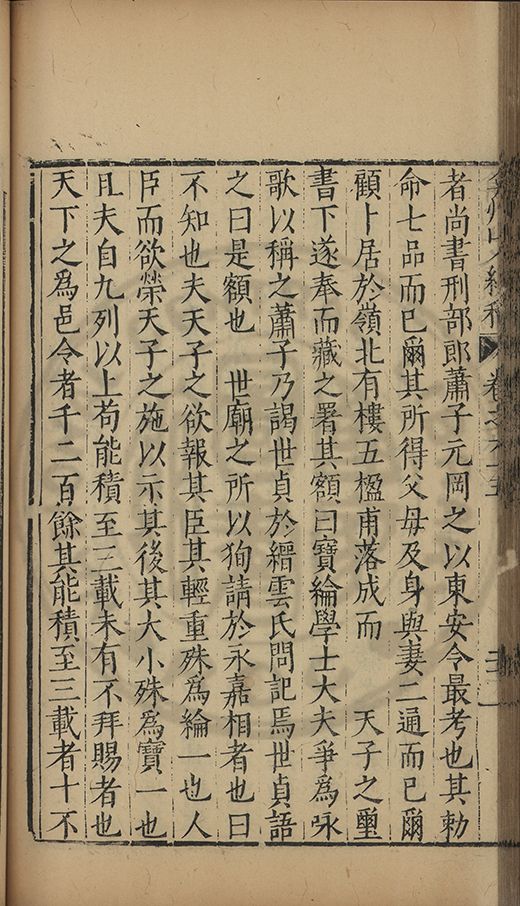 弇州山人續稿 卷之六十五
者尚書刑部郎蕭子元岡之以東安令最考也其勅
命七品而已爾其所得父母及身與妻二通而已爾
顧卜居於嶺北有樓五楹甫落成而 天子之璽
書下遂奉而藏之署其額曰寶綸學士大夫爭爲咏
歌以稱之蕭子乃謁世貞於縉雲氏問記焉世貞語
之曰是額也 世廟之所以狥請於永嘉相者也曰
不知也夫天子之欲報其臣其輕重殊爲綸一也人
臣而欲榮天子之施以示其後其大小殊爲寶一也
且夫自九列以上苟能積至三載未有不拜賜者也
天下之爲邑令者千二百餘其能積至三載者十不